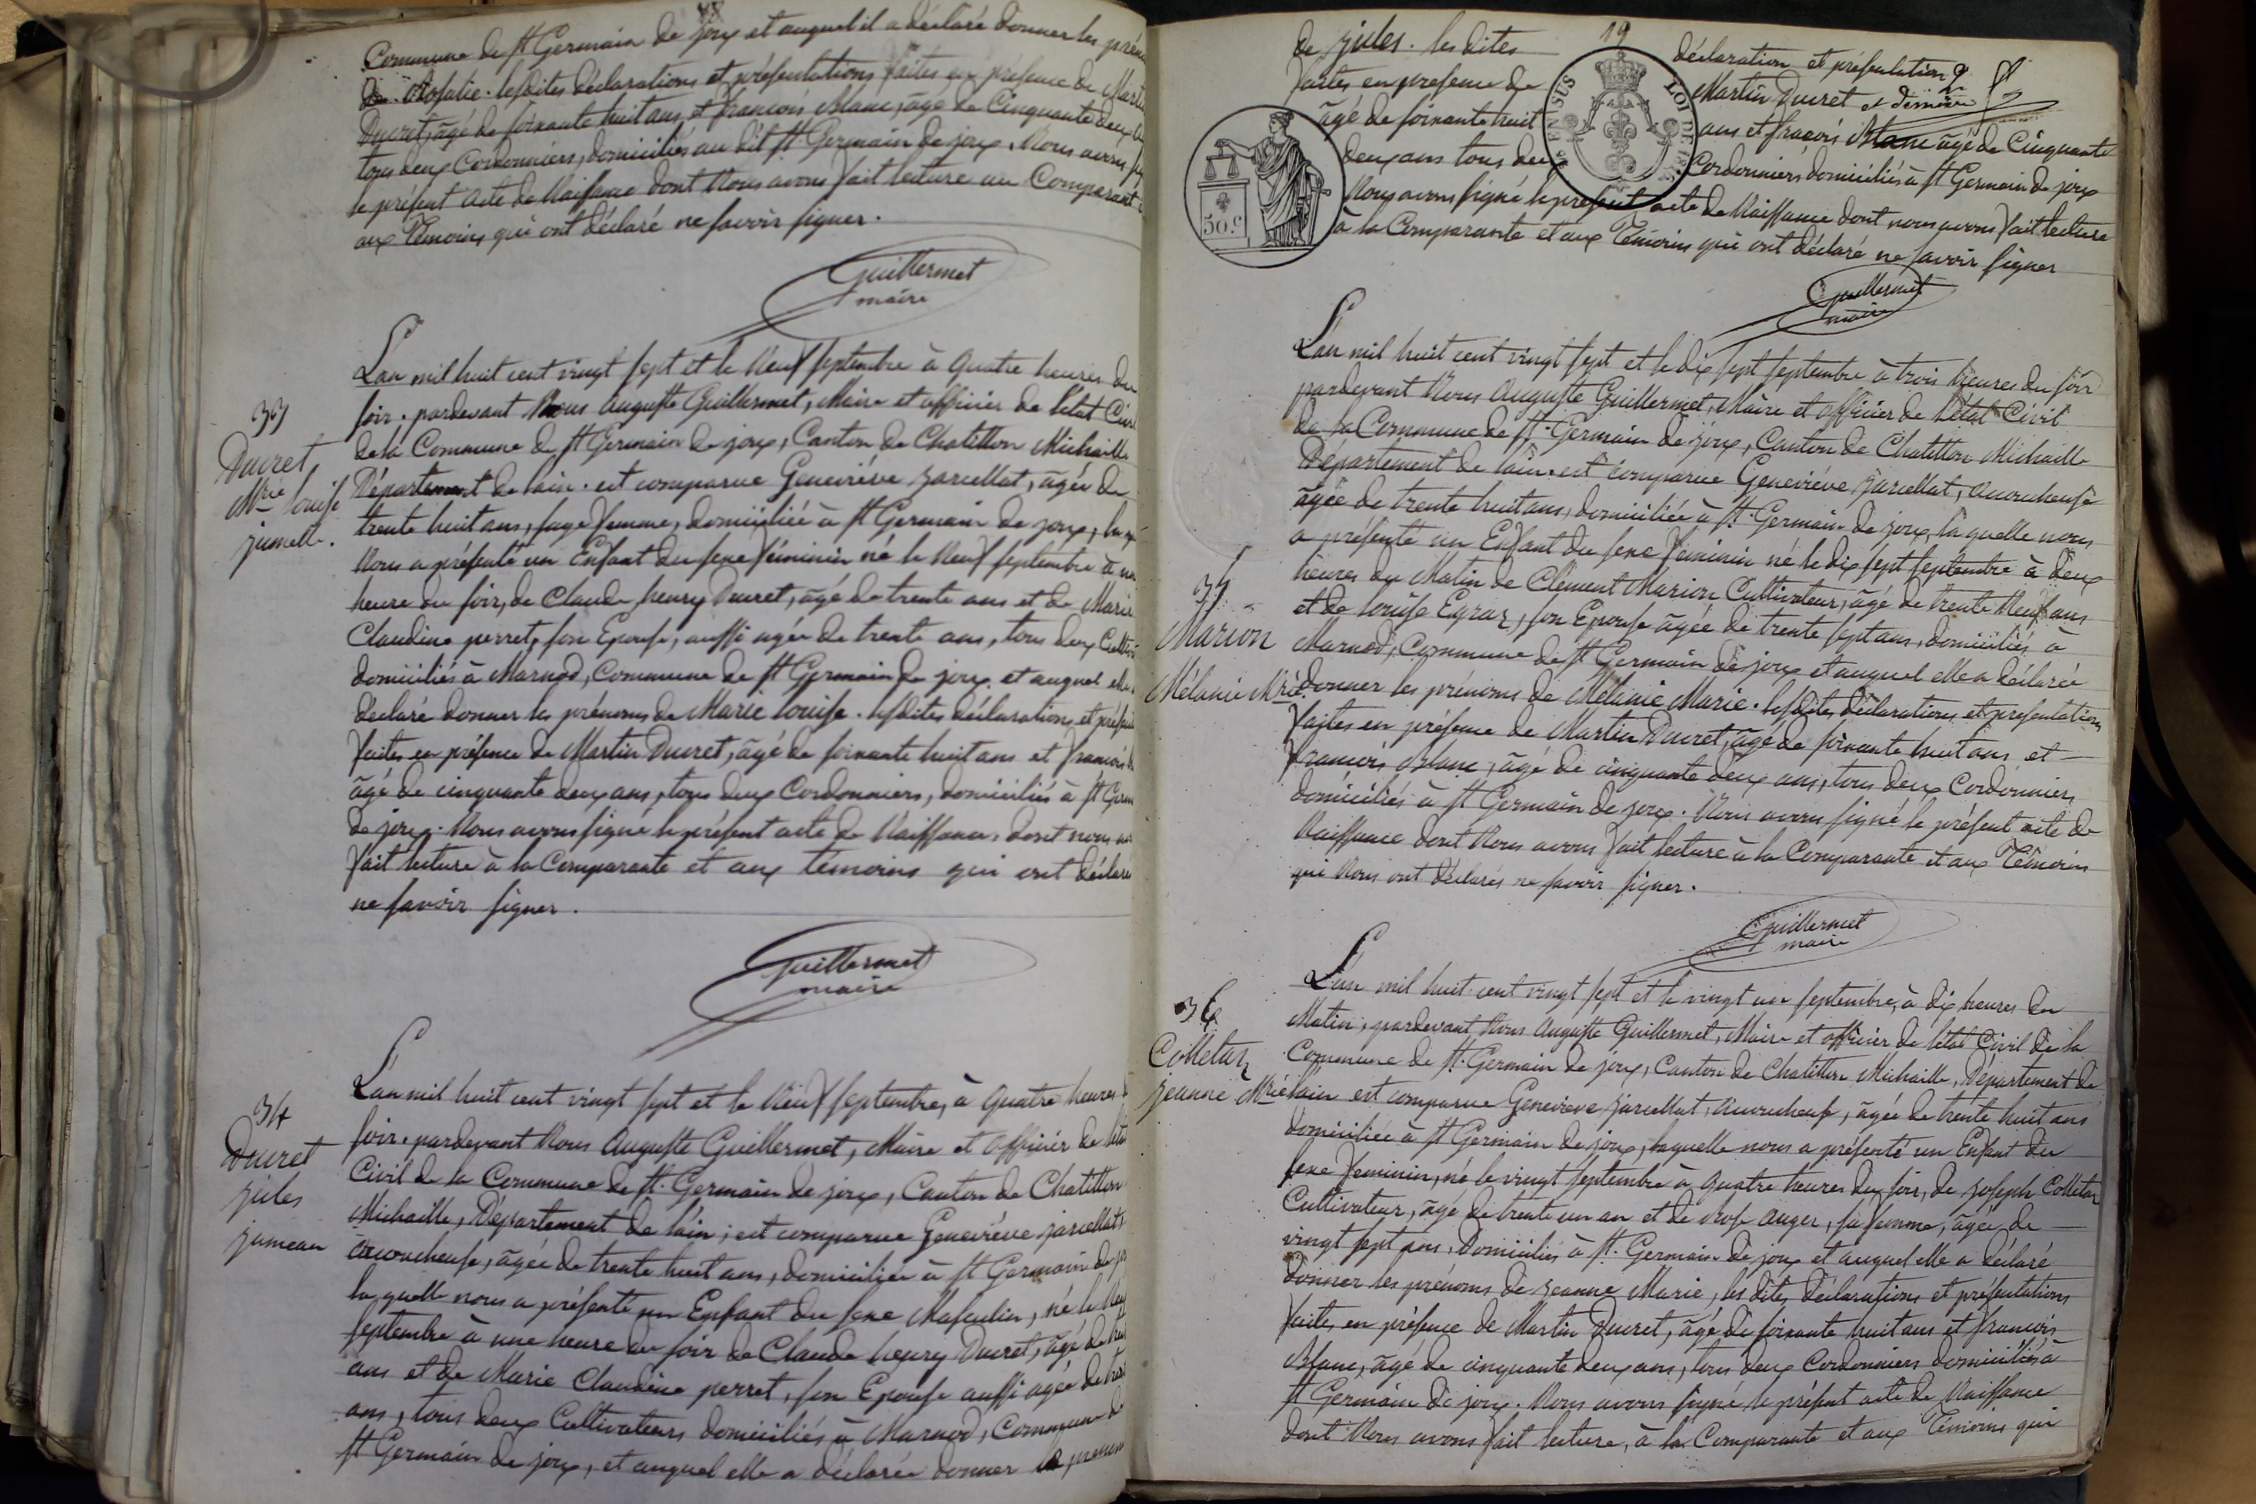 Commune de St Germain de joux et auquel il a déclaré donner les
de Rosalie. lesdites déclarations et présentations faites en présence de Martin
Ducret, âgé de soixante huit ans, et françois Blanc, âgé de Cinquante deux
tous deux Cordonniers, domiciliés au dit St Germain de joux. Nous avons
le présent acte de Naissance dont Nous avons fait lecture au Comparant
aux Témoins qui ont déclaré ne savoir signer.
Guillermet
maire
33
Ducret
Mrie louise
jumelle.
L'an mil huit cent vingt sept et le Neuf septembre à quatre heures du
soir, pardevant Nous Auguste Guillermet, Maire et officier de l'état Civil
de la Commune de St Germain de joux, Canton de Chatillon Michaille
Département de l'ain. est comparue Geneviéve jarcellat, agée de
trente huit ans, sage femme, domiciliée à St Germain de joux, la
Nous a présenté un Enfant du sexe féminin né le Neuf septembre à une
heure du soir, de Claude henry Ducret, âgé de trente ans et de Marie
Claudine perret, son Epouse, aussi agée de trente ans, tous deux
domiciliés à Marnod, Commune de St Germain de joux et auquel elle a
déclaré donner les prénoms de Marie louise. lesdites déclarations et
faites en présence de Martin Ducret, âgé de soixante huit ans et françois
âgé de cinquante deux ans, tous deux Cordonniers, domiciliés à St
de joux. Nous avons signé le présent acte de Naissance dont nous
fait lecture à la Comparante et aux témoins qui ont déclaré
ne savoir signer.
Guillermet
maire
34
Ducret
jules
jumeau
L'an mil huit cent vingt sept et le Neuf septembre, à quatre heures
soir, pardevant Nous Auguste Guillermet, Maire et officier de
Civil de la Commune de St Germain de joux, Canton de Chatillon
Michaille, Département de l'ain, est comparue Geneviéve jarcellat
accoucheuse, âgée de trente huit ans, domiciliée à St Germain de
la quelle nous a présenté un Enfant du sexe Masculin, né le
septembre à une heure du soir de Claude henry Ducret, âgé de
ans et de Marie Claudine perret, son Epouse aussi agée de
ans, tous deux Cultivateurs domiciliés à Marnod, Commune de
St Germain de joux, et auquel elle a déclarée donner
19
de jules. les dites déclaration et présentation
faites en presence de Martin Ducret
âgé de soixante huit ans et françois Blanc âgé de Cinquante
deux ans tous deux Cordonniers domiciliés à St Germain de joux
Nous avons signé le présent acte de Naissance dont nous avons fait lecture
à la Comparante et aux Témoins qui ont déclaré ne savoir signer
50.c
Guillermet
maire
35
Marion
Mélanie Mrie
L'an mil huit cent vingt sept et le dix sept septembre à trois heures du soir
pardevant Nous Auguste Guillermet, Maire et officier de l'état Civil
de la Commune de St Germain de joux, Canton de Chatillon Michaille
Département de l'ain. est comparue Geneviéve jarcellat, accoucheuse
âgée de trente huit ans, domiciliée à St Germain de joux, la quelle nous
a présenté un Enfant du sexe féminin né le dix sept septembre à deux
heures du Matin de Clément Marion Cultivateur, âgé de trente Neuf ans
et de louise Egraz, son Epouse âgée de trente sept ans, domiciliés à
Marnod, Commune de St Germain de joux et auquel elle a déclarée
donner les prénoms de Mélanie Marie. lesdites déclarations et presentations
faites en présence de Martin Ducret, âgé de soixante huit ans et
françois Blanc, âgé de cinquante deux ans, tous deux Cordonniers
domiciliés à St Germain de joux. Nous avons signé le présent acte de
Naissance dont Nous avons fait lecture à la Comparante et aux Témoins
qui Nous ont déclarés ne savoir signer.
Guillermet
maire
36
Colletaz
jeanne Mrie
L'an mil huit cent vingt sept et le vingt un septembre, à dix heures du
Matin, pardevant Nous Auguste Guillermet, Maire et officier de l'état Civil de la
Commune de St Germain de joux, Canton de Chatillon Michaille, Département de
l'ain est comparue Geneviève jarcellat, accoucheuse, âgée de trente huit ans
domiciliée à St Germain de joux, laquelle nous a présenté un Enfant du
sexe féminin, né le vingt septembre à quatre heures du soir, de joseph Colletaz
Cultivateur, âgé de trente un an et de Rose Auger, sa femme, âgée de
vingt sept ans, Domiciliés à St Germain de joux et auquel elle a déclaré
donner les prénoms de jeanne Marie, les dites déclarations et présentations
faites en présence de Martin Ducret, âgé de soixante huit ans et françois
Blanc, âgé de cinquante deux ans, tous deux Cordonniers domiciliés à
St Germain de joux. Nous avons signé le présent acte de Naissance
dont Nous avons fait lecture, à la Comparante et aux Témoins qui